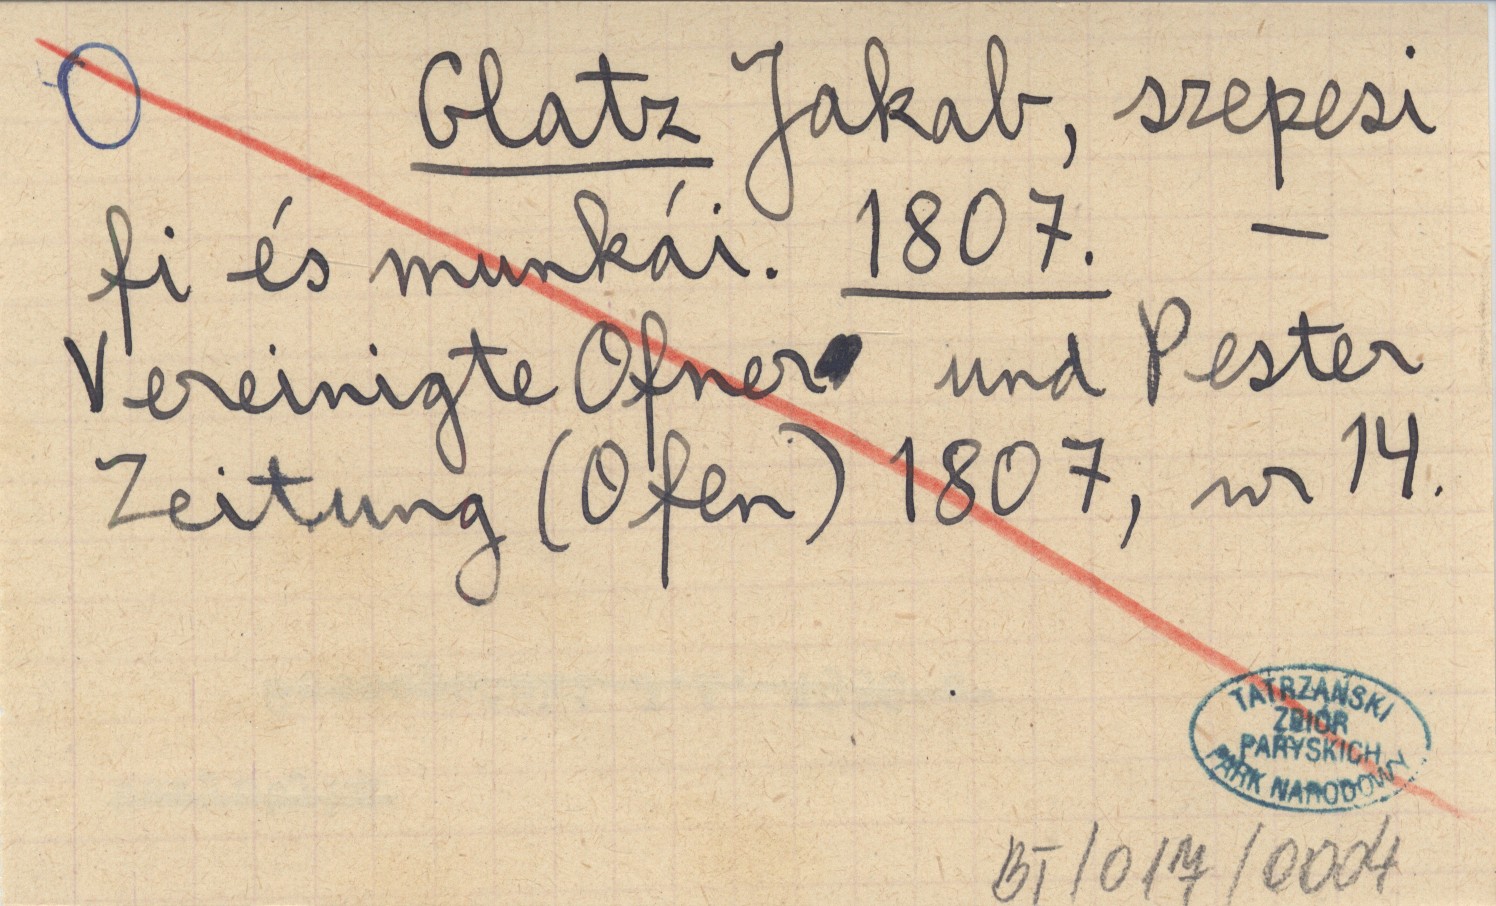 Glatz Jakab, szepesi
fi és munkái. 1807. —
Vereinigte Ofner und Pester
Zeitung (Ofen) 1807, nr 14.
TATRZAŃSKI
ZBIÓR
PARYSKICH
PARK NARODOWY
BT/017/0004